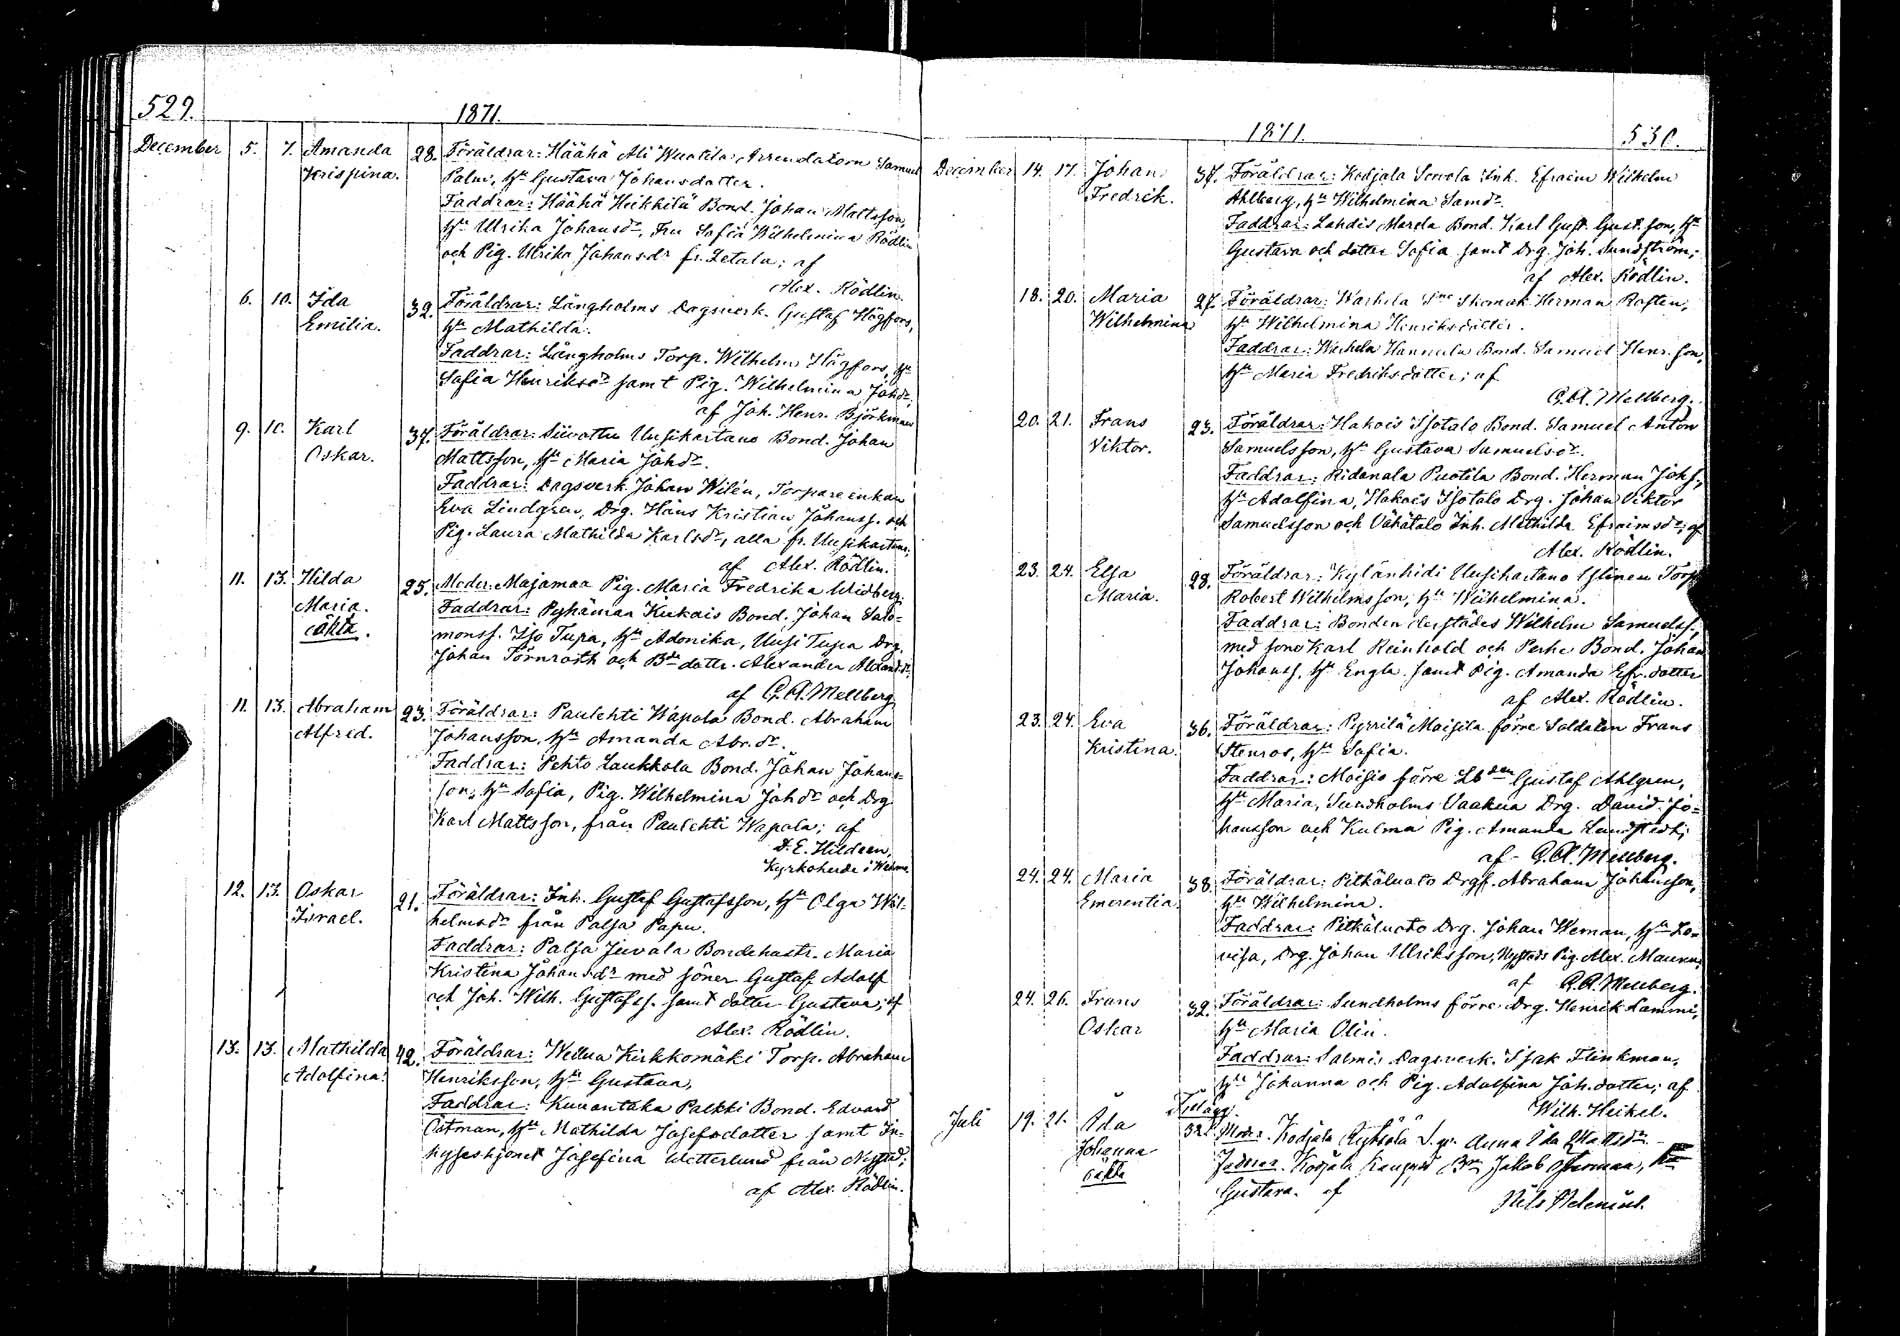 529.
1871.
December 5. 7. Amanda 28. Föräldrar: Häähä Ali Wuotila Arrendatorn Samuel
Krispina. Palm, Hu Gustava Johansdotter.
Faddrar: Häähä Heikkilä Bond. Johan Mattsson,
Hu Ulrika Johansdr, Fru Sofia Wilhelmina Rödlin
och Pig. Ulrika Johansdr fr. Zetala; af
Alex. Rödlin.
6. 10. Ida 32. Föräldrar: Långholms Dagsverk. Gustaf Högfors,
Emilia. Hu Mathilda.
Faddrar: Långholms Torp. Wilhelm Högfors, Hu
Sofia Henriksdr samt Pig. Wilhelmina Johdr,
af Joh. Henr. Björkman
9. 10. Karl 37. Föräldrar: Siivattu Uusikartano Bond. Johan
Oskar. Mattsson, Hu Maria Johdr.
Faddrar: Dagsverk. Johan Wilén, Torpareenkan
Eva Lindgren, Drg. Hans Kristian Johanss. och
Pig. Laura Mathilda Karlsdr, alla fr. Uusikartano;
af Alex. Rödlin.
11. 13. Hilda 25. Moder: Majamaa Pig. Maria Fredrika Widberg.
Maria. Faddrar: Pyhämaa Kukois Bond. Johan Salo-
oäkta. monss. Iso Tupa, Hu Adonika, Uusi Tupa Drg.
Johan Törnroth och Bde dotter Alexandra Alexandr.
af G. A. Mellberg
11. 13. Abraham 23. Föräldrar: Paulehti Wapola Bond. Abraham
Alfred. Johansson, Hu Amanda Abr.dr.
Faddrar: Pehto Laukkola Bond. Johan Johans-
son, Hu Sofia, Pig. Wilhelmina Johdr och Drg
Karl Mattsson, från Paulehti Wapola; af
D. E. Hildeen,
Kyrkoherde i Wehmo
12. 13. Oskar 21. Föräldrar: Inh. Gustaf Gustafsson, Hu Olga Wil-
Israel. helmsdr från Palsa Papu.
Faddrar: Palsa Juvala Bondehustr. Maria
Kristina Johansdr med söner Gustaf Adolf
och Joh. Wilh. Gustafss. samt dotter Gustava; af
Alex. Rödlin.
13. 13. Mathilda 42. Föräldrar: Wellua Kirkkomäki Torp. Abraham
Adolfina. Henriksson, Hu Gustava,
Faddrar: Kuuantaka Palkki Bond. Edvard
Östman, Hu Mathilda Josefsdotter samt In-
hyseshjonet Josefina Wetterlund från Nystad;
af Alex. Rödlin.
1871. 530.
December 14. 17. Johan 34. Föräldrar: Kodjala Senola Inh. Efraim Wilhelm
Fredrik. Ahlberg, Hu Wilhelmina Samdr
Faddrar: Lahdis Marola Bond. Karl Gust. Gust. son, Hu
Gustava och dotter Sofia samt Drg. Joh. Sundström;
af Alex. Rödlin.
18. 20. Maria 27. Föräldrar: Warhela Skomak. Herman Rosten,
Wilhelmina Hu Wilhelmina Henriksdotter.
Faddrar: Warhela Hannula Bond. Samuel Henr. son,
Hu Maria Fredriksdotter; af
G. A. Mellberg.
20. 21. Frans 23. Föräldrar: Hakois Isotalo Bond. Samuel Anton
Viktor. Samuelsson, Hu Gustava Samuelsdr.
Faddrar: Ridanala Puotila Bond. Herman Johs,
Hu Adolfina, Hakois Isotalo Drg. Johan Viktor
Samuelsson och Vähätalo Inh. Mathilda Efraimsdr; af
Alex. Rödlin.
23. 24. Elsa 28. Föräldrar: Kylänhidi Uusikartano Torp.
Maria. Robert Wilhelmsson, Hu Wilhelmina.
Faddrar: Bonden derstädes Wilhelm Samuelss,
med sone Karl Reinhold och Perhe Bond. Johan
Johanss. Hu Engla samt Pig. Amanda Efr. dotter
af Alex. Rödlin.
23. 24. Eva 36. Föräldrar: Pyrrilä Moisila förre Soldaten Frans
Kristina. Stenros, Hu Sofia.
Faddrar: Moisio förre Gustaf Ahlgren,
Hu Maria, Sundholms Vaakua Drg. David Jo-
hansson och Kulma Pig. Amanda Lundstedt;
af G. A. Mellberg.
24. 24. Maria 38. Föräldrar: Pitkäluoto Drgf. Abraham Johansson,
Emerentia. Hu Wilhelmina.
Faddrar: Pitkäluoto Drg. Johan Weman, Hu Lo-
visa, Drg. Johan Ulriksson, Nystads Pig. Alex. Maunu;
af G. A. Mellberg.
24. 26. Frans 32. Föräldrar: Sundholms förre Drg. Henrik Lammi,
Oskar Hu Maria Olin.
Faddrar: Salmis Dagsverk. Isak Flinkman,
Hu Johanna och Pig. Adolfina Joh. dotter; af
Wilh. Heikel.
Tillägg.
Juli 19. 21. Ada 32. Moder. Kodjala Anna Ida Mattsdr
Johanna Faddrar. Kodjala Bn Jakob Hu
oäkta Gustava. af
Nils Helenius.